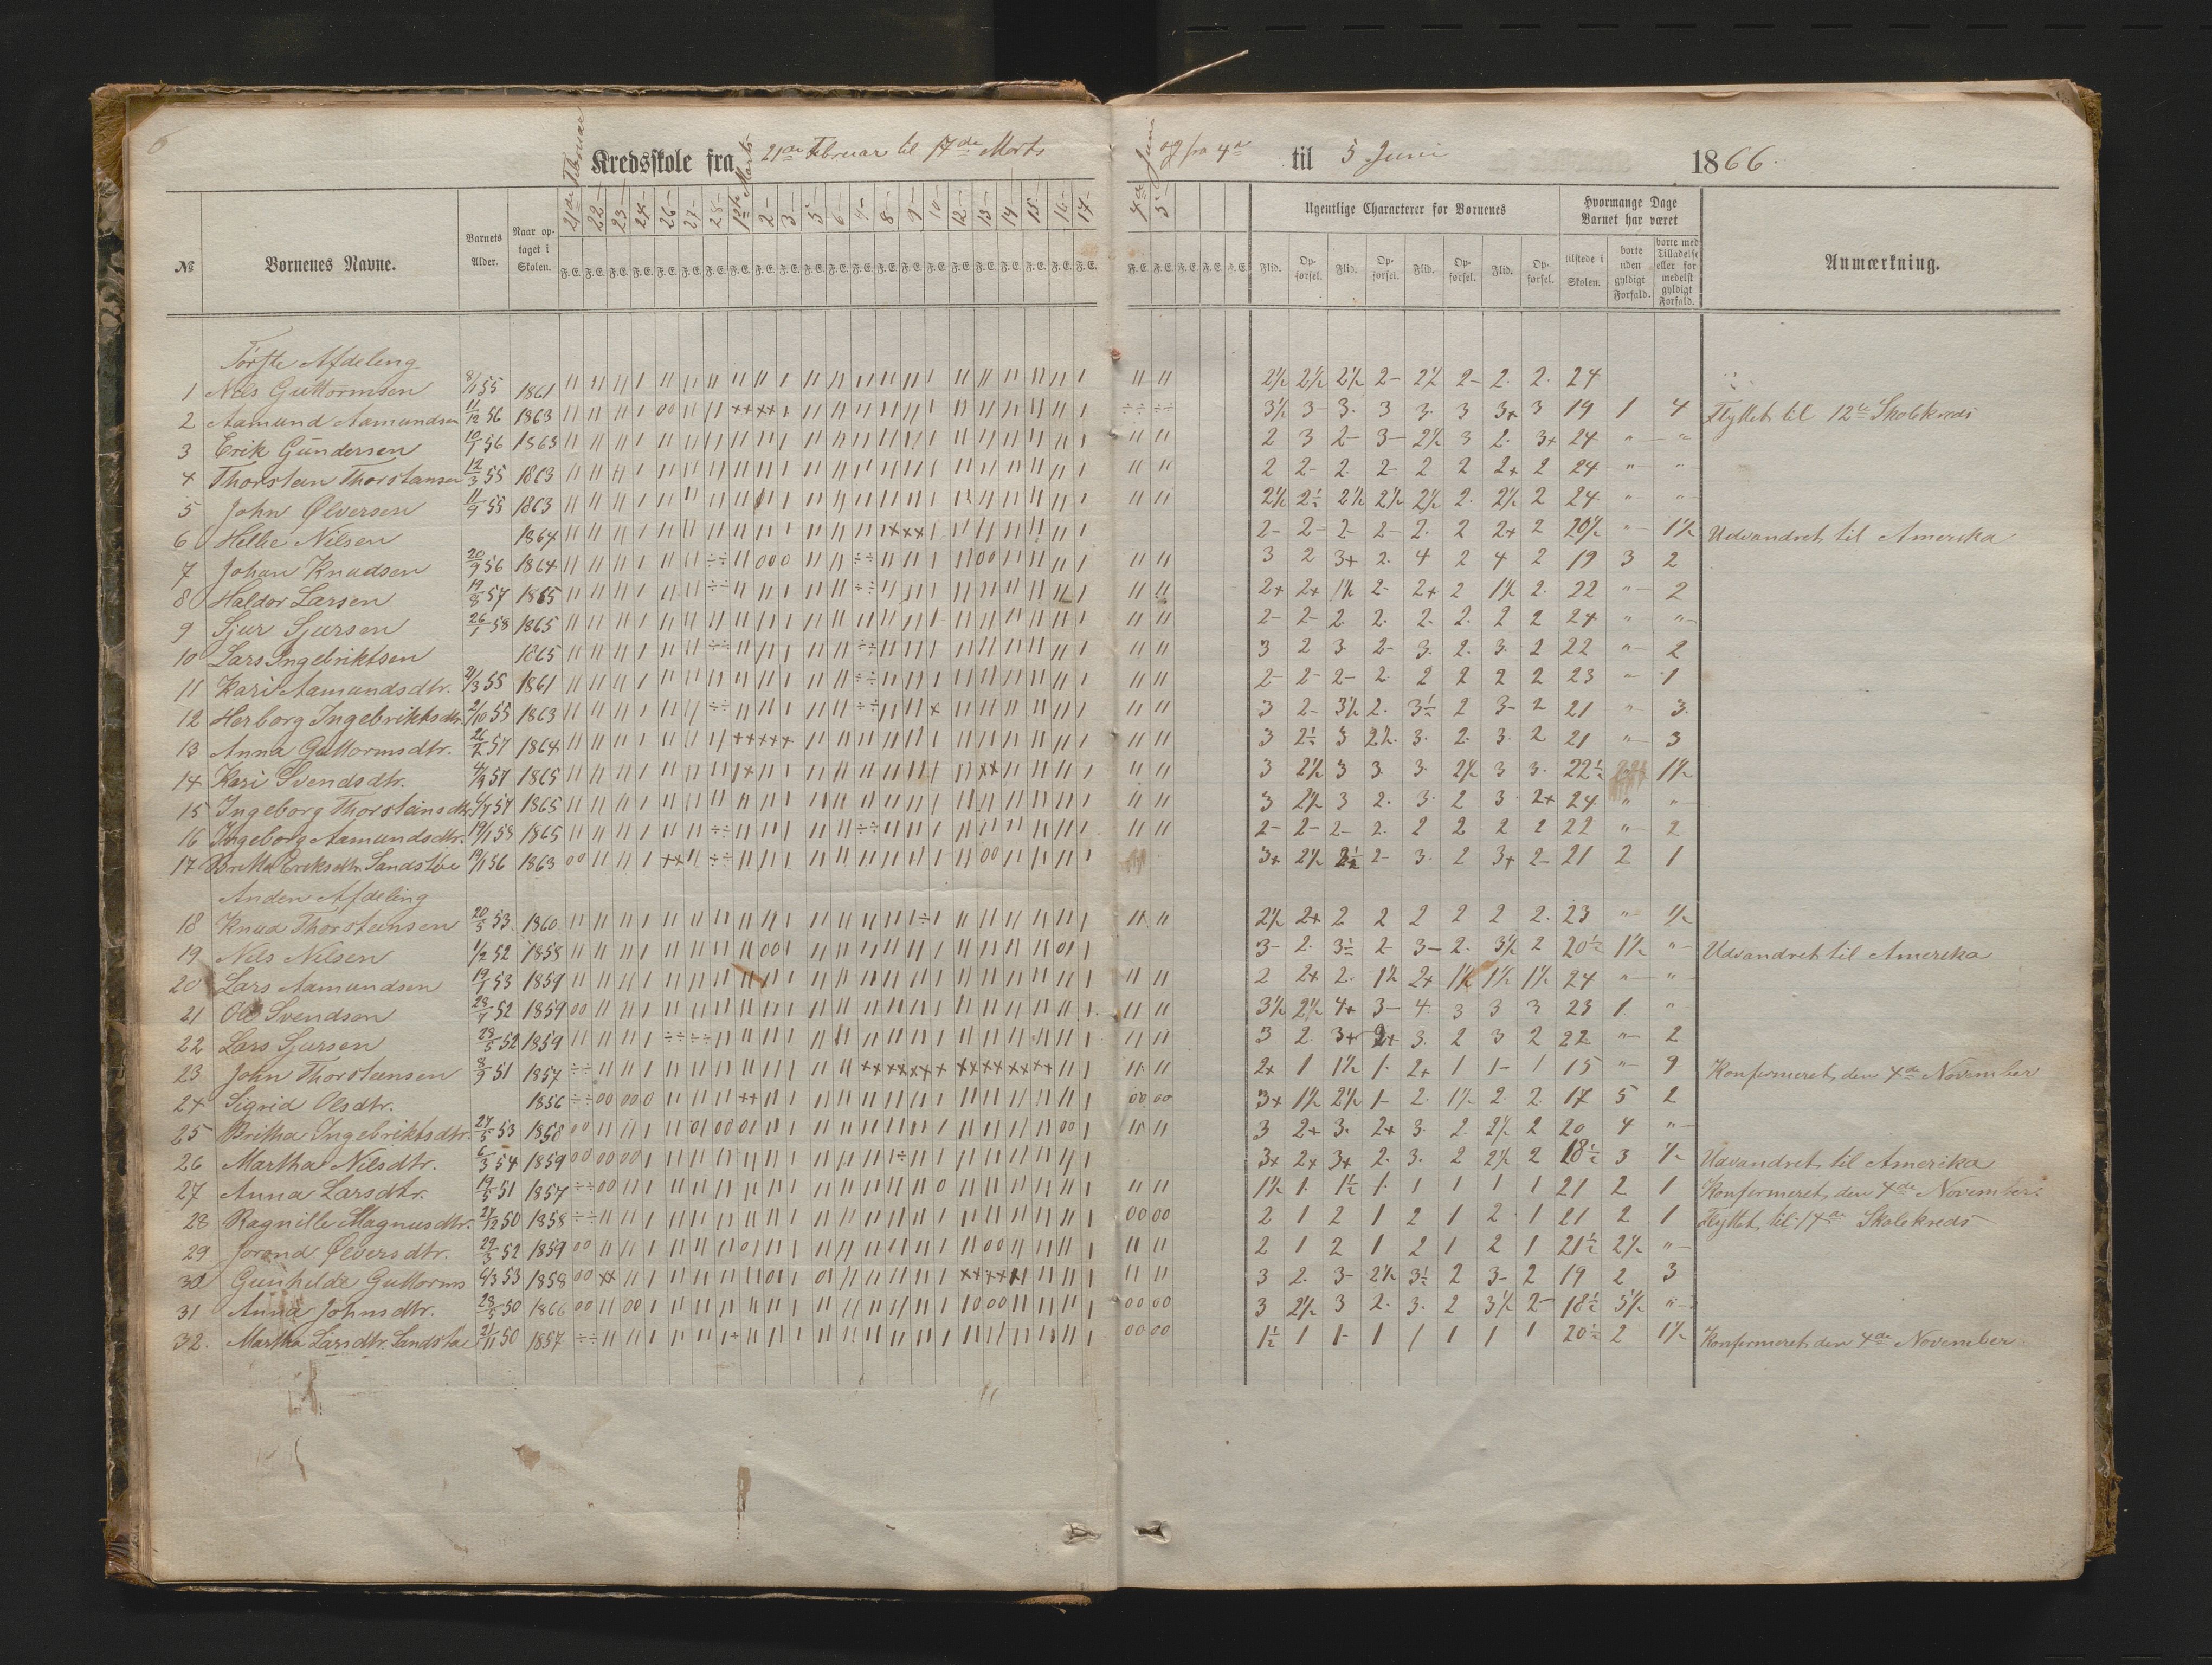 6
Kredsskole fra 21de Februar til 17de Marts og fra 4de til 5 Juni 1866.
21de Februar 22 23 24 26 27 28 1ste Marts 2 3 5 6 7 8 9 10 12 13 14 15 16 17 4de Juni 5
Ugentlige Characterer for Børnenes
Hvormange Dage Barnet har været
№ Børnenes Navne. Barnets Alder. Naar optaget i Skolen. F.E. Flid. Opførsel. Flid. Opførsel. Flid. Opførsel. Flid. Opførsel. tilstede i Skolen. borte uden gyldigt Forfald. borte med Tilladelse eller formedelst gyldigt Forfald. Anmærkning.
Første Afdeling
1 Nils Guttormsen 8/1 55 1861 2½ 2½ 2½ 2- 2½ 2- 2. 2. 24
2 Aamund Aamundsen 11/12 56 1863 3½ 3- 3. 3 3. 3 3+ 3 19 1 4 Flyttet til 12te Skolekreds
3 Erik Gundersen 10/7 56 1863 2 3 2- 3- 2½ 3 2. 3+ 24 " "
4 Thorstein Thorstensen 12/3 55 1863 2 2- 2. 2- 2 2 2+ 2 24 " "
5 John Ølversen 11/9 55 1863 2½ 2½ 2½ 2½ 2½ 2. 2½ 2 24 " "
6 Helbe Nilsen 1864 2- 2- 2- 2- 2. 2 2+ 2 20½ " 1½ Udvandret til Amerika
7 Johan Knudsen 20/9 56 1864 3 2 3+ 2. 4 2 4 2 19 3 2
8 Haldor Larsen 19/8 57 1865 2+ 2+ 1½ 2- 2+ 2 1½ 2. 22 " 2
9 Sjur Sjursen 26/1 58 1865 2- 2- 2. 2. 2. 2. 2 2 24 " "
10 Lars Ingebriktsen 1865 3 2 3. 2- 3. 2. 3. 2 22 " 2
11 Kari Aamundsdtr. 21/3 55 1861 2- 2- 2- 2. 2 2 2 2 23 " 1
12 Herborg Ingebriktsdtr. 2/10 55 1863 3 2- 3½ 2. 3½ 2 3- 2 21 " 3.
13 Anna Guttormsdtr. 26/2 57 1864 3 2½ 3 2½. 3. 2. 3. 2 21 " 3
14 Kari Svendsdtr. 57 1865 3 2½ 3 3. 3. 2½ 3 3. 22½ 1½
15 Ingeborg Thorsteinsdtr. 57 1865 3 2½ 3 2. 3. 2 3 2+ 24 " "
16 Ingeborg Aamundsdtr. 19/1 58 1865 2- 2- 2- 2. 2 2 2 2 22 " 2
17 Britta Eriksdtr. Sandsløe 19/1 56 1863 3+ 2½ 2½ 2- 3. 2 3+ 2- 21 2 1
Anden Afdeling
18 Knud Thorsteinsen 20/5 53. 1860 2½ 2+ 2 2 2 2 2 2. 23 " ½
19 Nils Nilsen 1/2 52 1858 3- 2. 3½ 2- 3- 2. 3½ 2 20½ 1½ " Udvandret til Amerika
20 Lars Aamundsen 19/1 53 1859 2 2+ 2. 1½ 2+ 1½ 1½ 1½ 24 " "
21 Ole Svendsen 52 1859 3½ 2½ 4+ 3- 4. 3 3 3 23 1 "
22 Lars Sjursen 28/5 52 1859 3 2. 3+ 2+ 3. 2 3 2 22 " 2
23 John Thorsteinsen 8/9 51 1857 2+ 1 1½ 1. 2+ 1 1- 1 15 " 9 Konfirmeret den 4de November
24 Sigrid Olsdtr. 1856 3+ 1½ 2½ 1- 2. 1½ 2. 2. 17 5 2
25 Britha Ingebriktsdtr. 27/5 53 1858 3 2+ 3. 2+ 3. 2. 2½ 2 20 4 "
26 Martha Nilsdtr. 6/3 54 1859 3+ 2+ 3+ 2. 3. 2 2½ 2 18½ 3 ½ Udvandret til Amerika
27 Anna Larsdtr. 19/5 51 1857 1½ 1. 1½ 1. 1 1 1 1 21 2 1 Konfirmeret den 4de November.
28 Ragnille Magnusdtr. 27/12 50 1858 2 1 2 1 2 1 2 1 21 2 1 Flyttet til 14de Skolekreds
29 Jorand Ølversdtr. 29/3 52 1859 2 1 2 1 2 1 2 1 21½ 2½ "
30 Gunhilde Guttorms 6/3 53 1858 3 2. 3- 2½ 3½ 2 3- 2 19 2 3
31 Anna Johnsdtr. 28/5 50 1866 3 2½ 3 2. 3. 2 3½ 2- 18½ 5½ "
32. Martha Larsdtr. Sandsløe 21/11 50 1857 1½ 1 1- 1 1 1 1 1 20½ 2 1½ Konfirmeret den 4de November